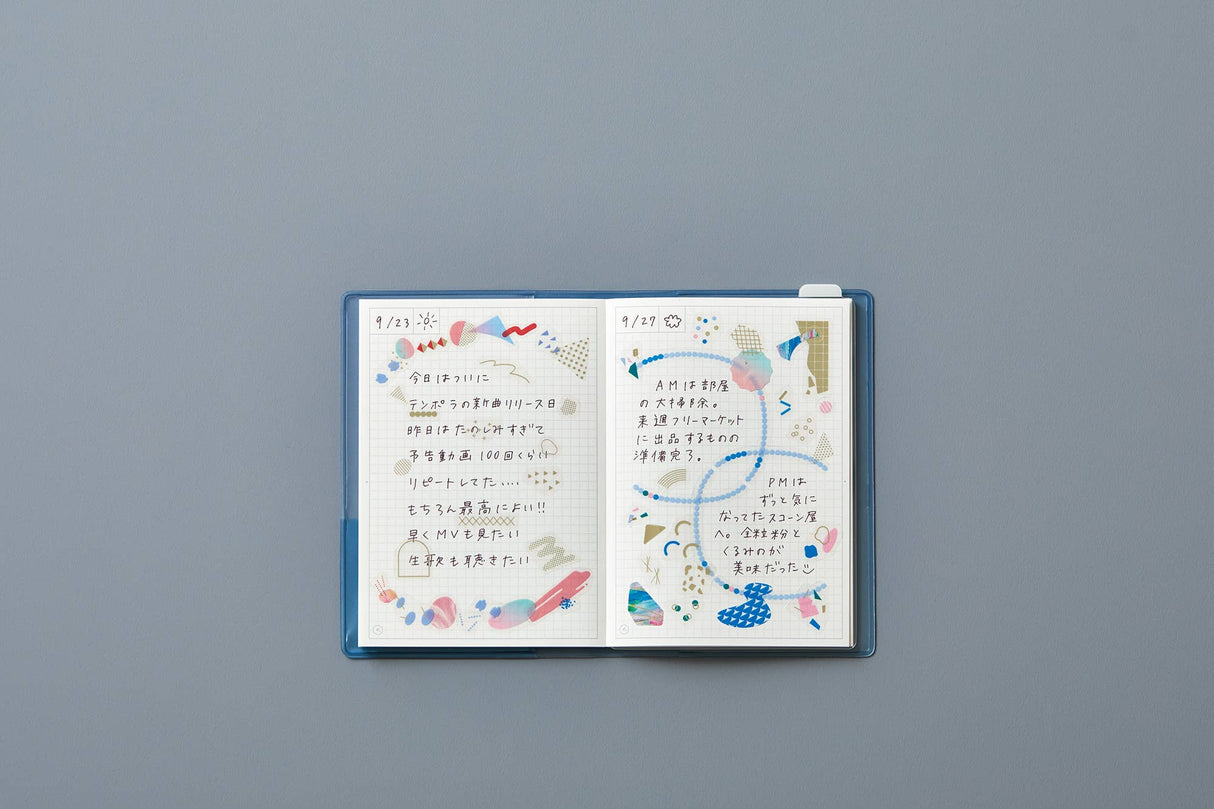 9/23
今日はついに
テンポラの新曲リリース日
昨日はたのしみすぎて
予告動画100回くらい
リピートしてた‥‥
もちろん最高によい!!
早くMVも見たい
生歌も聴きたい
9/27
AMは部屋
の大掃除。
来週フリーマーケット
に出品するものの
準備完了。
PMは
ずっと気に
なってたスコーン屋
へ。全粒粉と
くるみのが
美味だった